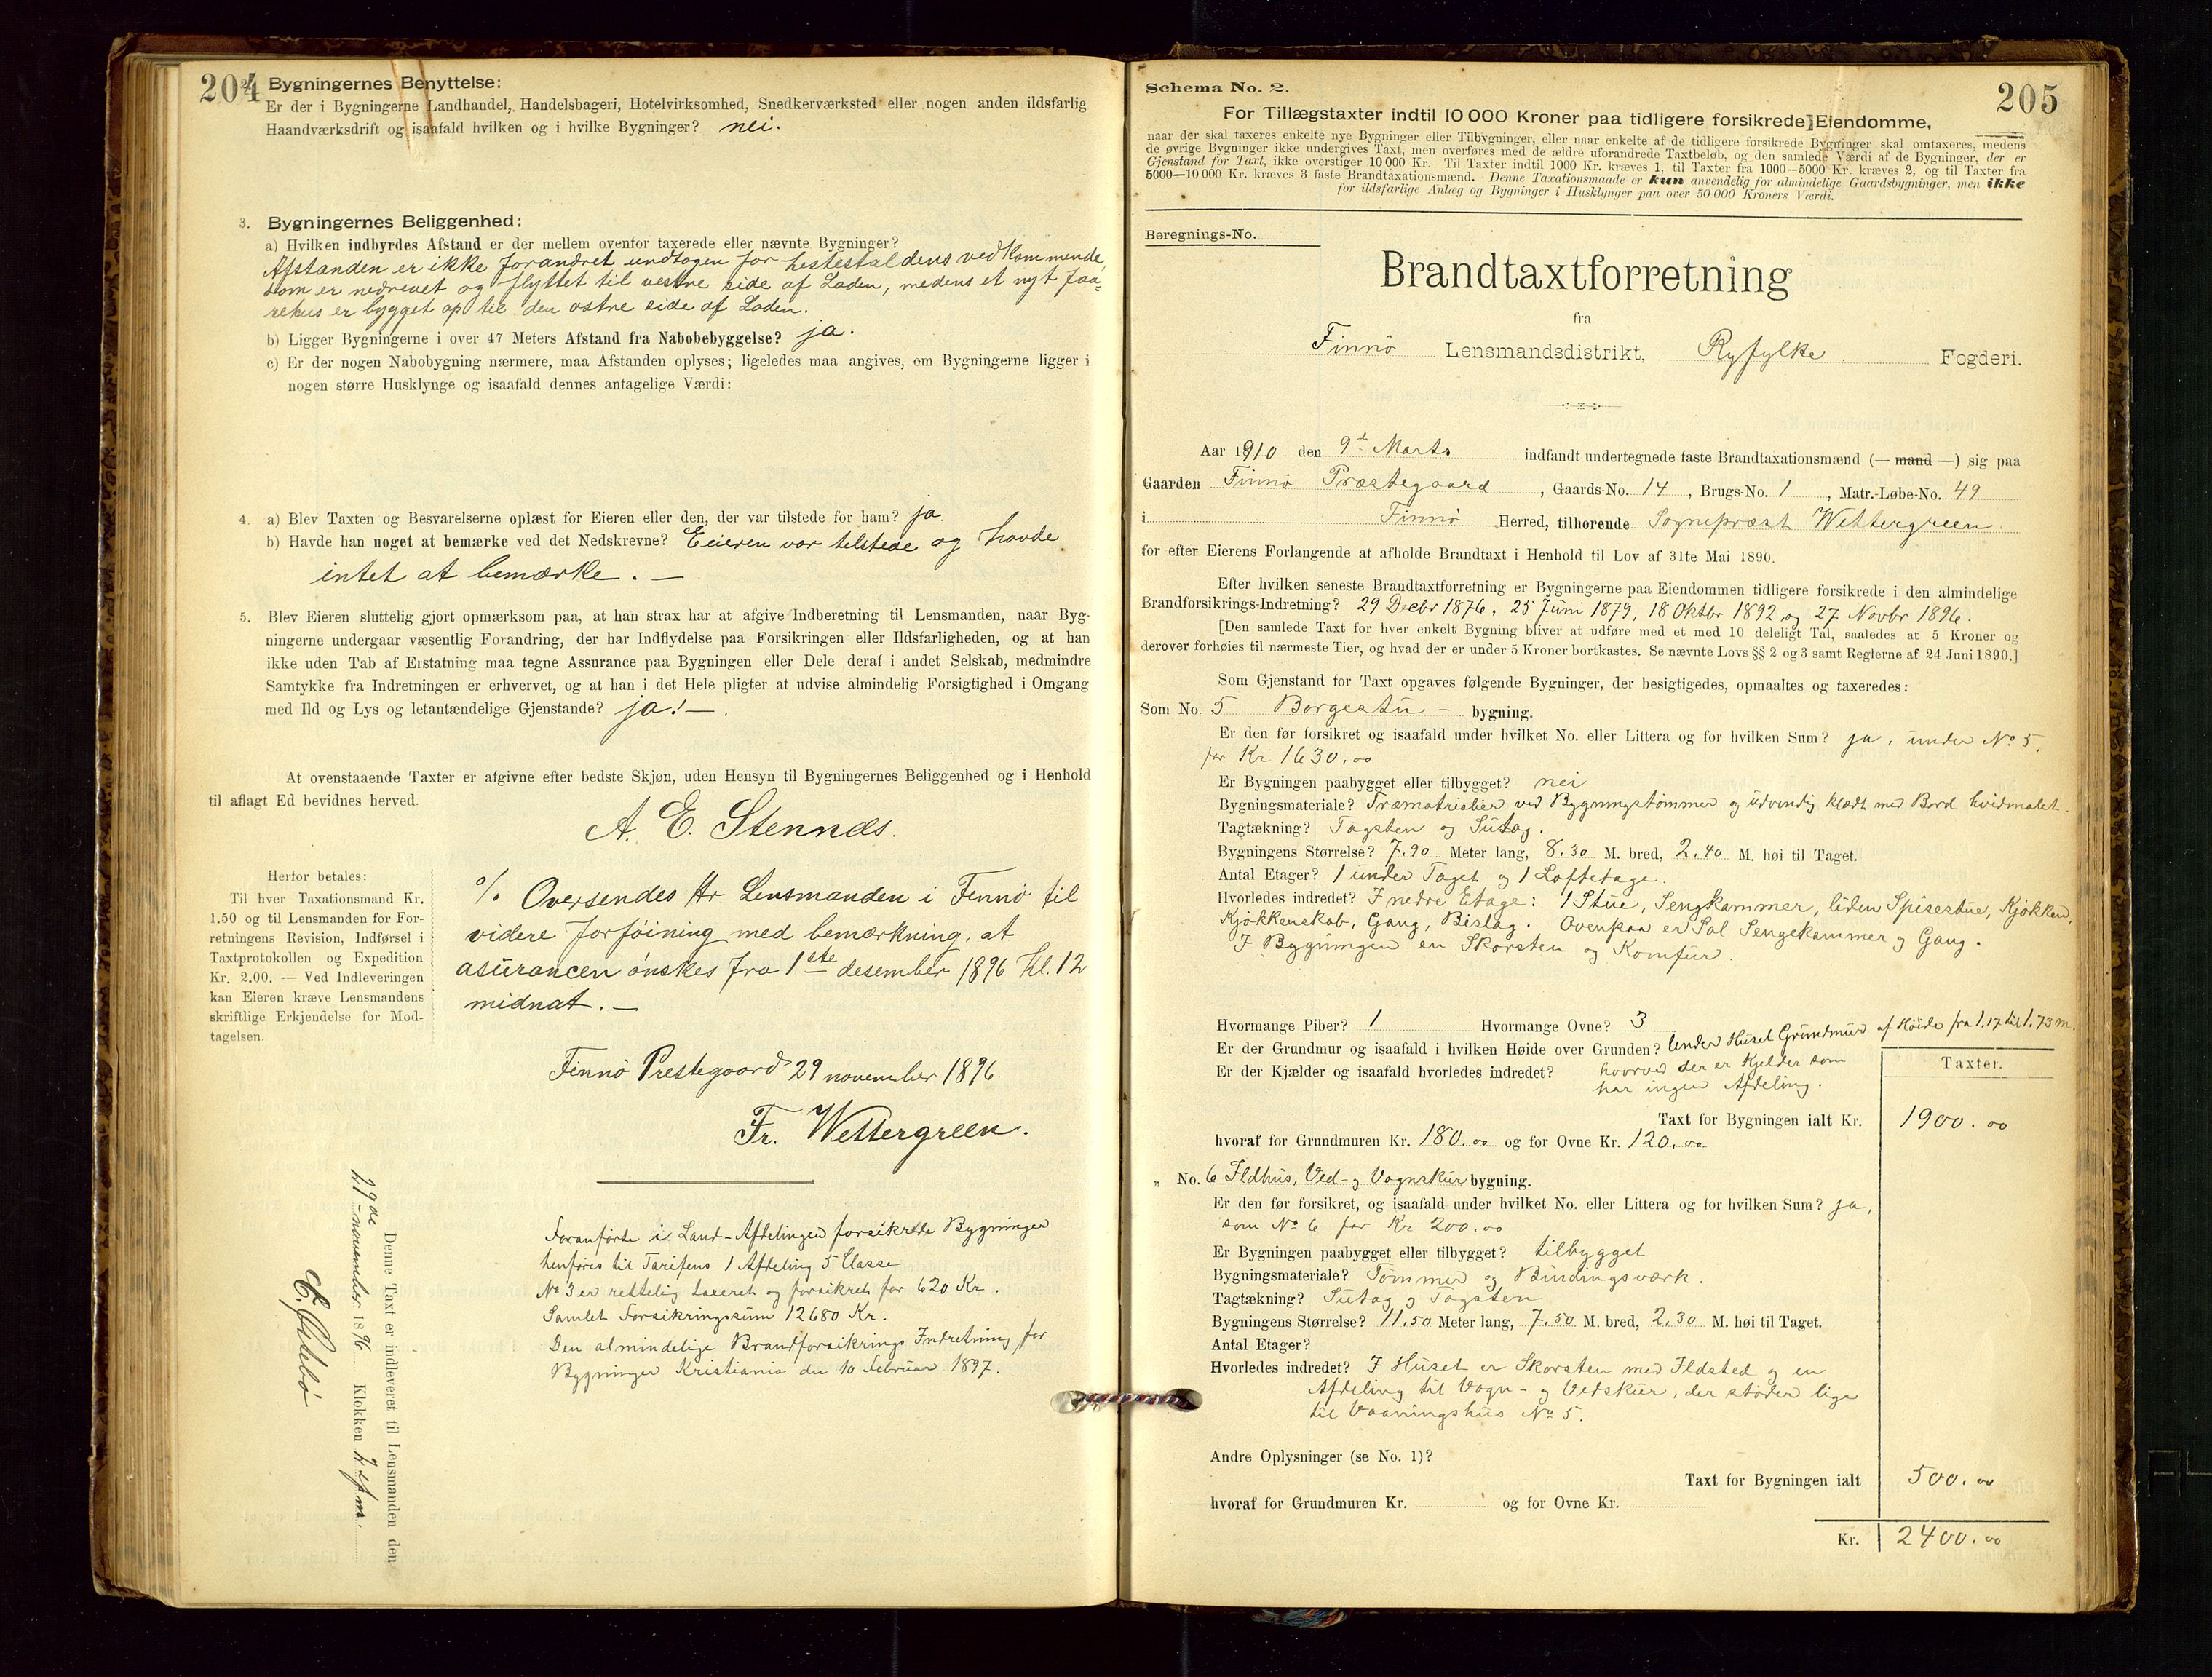 204
Bygningernes Benyttelse:
Er der i Bygningerne Landhandel, Handelsbageri, Hotelvirksomhed, Snedkerværksted eller nogen anden ildsfarlig
Haandværksdrift og isaafald hvilken og i hvilke Bygninger? nei.
3. Bygningernes Beliggenhed:
a) Hvilken indbyrdes Afstand er der mellem ovenfor taxerede eller nævnte Bygninger?
Afstanden er ikke forandret undtagen for hestestaldens vedkommende,
som er nedrevet og flyttet til vestre side af Laden, medens et nyt faa=
rehus er bygget op til den østre side af Laden.
b) Ligger Bygningerne i over 47 Meters Afstand fra Nabobebyggelse? ja.
c) Er der nogen Nabobygning nærmere, maa Afstanden oplyses; ligeledes maa angives, om Bygningerne ligger i
nogen større Husklynge og isaafald dennes antagelige Værdi:
4. a) Blev Taxten og Besvarelserne oplæst for Eieren eller den, der var tilstede for ham? ja.
b) Havde han noget at bemærke ved det Nedskrevne? Eieren var tilstede og havde
intet at bemærke. —
5. Blev Eieren sluttelig gjort opmærksom paa, at han strax har at afgive Indberetning til Lensmanden, naar Byg-
ningerne undergaar væsentlig Forandring, der har Indflydelse paa Forsikringen eller Ildsfarligheden, og at han
ikke uden Tab af Erstatning maa tegne Assurance paa Bygningen eller Dele deraf i andet Selskab, medmindre
Samtykke fra Indretningen er erhvervet, og at han i det Hele pligter at udvise almindelig Forsigtighed i Omgang
med Ild og Lys og letantændelige Gjenstande? ja! —.
At ovenstaaende Taxter er afgivne efter bedste Skjøn, uden Hensyn til Bygningernes Beliggenhed og i Henhold
til aflagt Ed bevidnes herved.
A. E. Stennæs.
Herfor betales:
Til hver Taxationsmand Kr.
1.50 og til Lensmanden for For-
retningens Revision, Indførsel i
Taxtprotokollen og Expedition
Kr. 2,00. — Ved Indleveringen
kan Eieren kræve Lensmandens
skriftlige Erkjendelse for Mod-
tagelsen.
%. Oversendes Hr Lensmanden i Finnø til
videre forføining med bemærkning, at
asurancen ønskes fra 1ste desember 1896 Kl. 12
midnat. —
Finnø Prestegaard 29 november 1896.
Fr. Wettergreen.
Foranførte i Land-Afdelingen forsikrede Bygninger
henføres til Tarifens 1 Afdeling 5 Classe
No 3 er rettelig taxeret og forsikret for 620 Kr.
Samlet Forsikringssum 12680 Kr.
Den almindelige Brandforsikrings Indretning for
Bygninger Kristiania den 10 Februar 1897.
Denne Taxt er indleveret til Lensmanden den
29de november 1896 Klokken
205
Schema No. 2.
For Tillægstaxter indtil 10 000 Kroner paa tidligere forsikrede Eiendomme,
naar der skal taxeres enkelte nye Bygninger eller Tilbygninger, eller naar enkelte af de tidligere forsikrede Bygninger skal omtaxeres, medens
de øvrige Bygninger ikke undergives Taxt, men overføres med de ældre uforandrede Taxtbeløb, og den samlede Værdi af de Bygninger, der er
Gjenstand for Taxt, ikke overstiger 10 000 Kr. Til Taxter indtil 1000 Kr. kræves 1, til Taxter fra 1000—5000 Kr. kræves 2, og til Taxter fra
5000—10 000 Kr. kræves 3 faste Brandtaxationsmænd. Denne Taxationsmaade er kun anvendelig for almindelige Gaardsbygninger, men ikke
for ildsfarlige Anlæg og Bygninger i Husklynger paa over 50 000 Kroners Værdi.
Beregnings-No.
Brandtaxtforretning
fra
Finnø Lensmandsdistrikt, Ryfylke Fogderi.
Aar 1910 den 9de Marts indfandt undertegnede faste Brandtaxationsmænd (— mand —) sig paa
Gaarden Finnø Præstegaard, Gaards-No. 14, Brugs-No. 1, Matr.-Løbe-No. 49
i Finnø Herred, tilhørende Sognepræst Wettergreen
for efter Eierens Forlangende at afholde Brandtaxt i Henhold til Lov af 31te Mai 1890.
Efter hvilken seneste Brandtaxtforretning er Bygningerne paa Eiendommen tidligere forsikrede i den almindelige
Brandforsikrings-Indretning? 29 Decbr 1876, 25 Juni 1879, 18 Oktbr 1892, og 27 Novbr 1896.
[Den samlede Taxt for hver enkelt Bygning bliver at udføre med et med 10 deleligt Tal, saaledes at 5 Kroner og
derover forhøies til nærmeste Tier, og hvad der er under 5 Kroner bortkastes. Se nævnte Lovs §§ 2 og 3 samt Reglerne af 24 Juni 1890.]
Som Gjenstand for Taxt opgaves følgende Bygninger, der besigtigedes, opmaaltes og taxeredes:
Som No. 5 Borgestu — bygning.
Er den før forsikret og isaafald under hvilket No. eller Littera og for hvilken Sum? ja, under No 5,
for Kr 1630,00
Er Bygningen paabygget eller tilbygget? nei
Bygningsmateriale? Træmatrialier ved Bygningstømmer og udvendig klædt med Bord hvidmalet.
Tagtækning? Tagsten og Sutag.
Bygningens Størrelse? 7,90 Meter lang, 8,30 M. bred, 2,40 M. høi til Taget.
Antal Etager? 1 under Taget og 1 Loftetage.
Hvorledes indredet? I nedre Etage: 1 Stue, Sengkammer, liden Spisestue, Kjøkken,
Kjøkkenskab, Gang, Bislag. Ovenpaa er Sal Sengekammer og Gang.
I Bygningen en Skorsten og Komfur.
Hvormange Piber? 1 Hvormange Ovne? 3
Er der Grundmur og isaafald i hvilken Høide over Grunden? Under Huset Grundmur af Høide fra 1,17 til 1,73 m.
Er der Kjælder og isaafald hvorledes indredet? hvorved der er Kjelder som
har ingen Afdeling.
Taxter.
Taxt for Bygningen ialt Kr. 1900.00
hvoraf for Grundmuren Kr. 180.00 og for Ovne Kr. 120,00
„ No. 6 Ildhus, Ved- og Vognskur bygning.
Er den før forsikret, og isaafald under hvilket No. eller Littera og for hvilken Sum? ja,
som No 6 for Kr 200.00
Er Bygningen paabygget eller tilbygget? tilbygget
Bygningsmateriale? Tømmer og Bindingsværk.
Tagtækning? Sutag og Tagsten
Bygningens Størrelse? 11,50 Meter lang, 7,50 M. bred, 2,30 M. høi til Taget,
Antal Etager?
Hvorledes indredet? I Huset er Skorsten med Ildsted og en
Afdeling til Vogn- og Vedskur, der støder lige
til Vaaningshus No 5.
Andre Oplysninger (se No. 1)?
Taxt for Bygningen ialt 500.00
hvoraf for Grundmuren Kr. og for Ovne Kr.
Kr. 2400.00